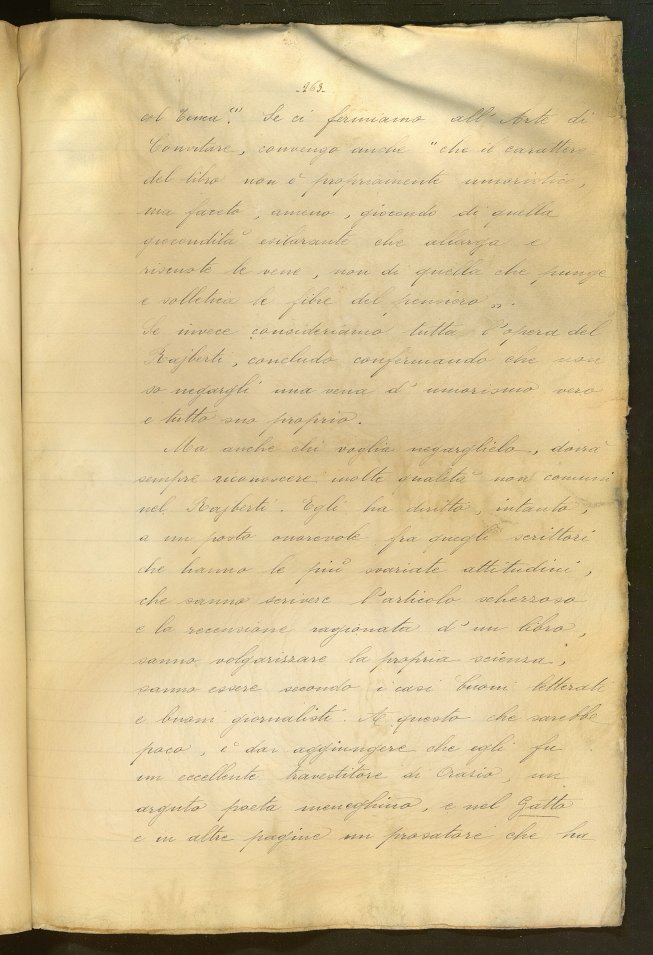 -263-
col Tenca (1). Se ci fermiamo all'Arte di
Convitare, convengo anche "che il carattere
del libro non è propriamente umoristico,
ma faceto, ameno, giocondo di quella
giocondità esilarante che allarga e
riscuote le vene, non di quella che punge
e solletica le fibre del pensiero".
Se invece consideriamo tutta l'opera del
Rajberti, concludo confermando che non
so negargli una vena d'umorismo vero
e tutto suo proprio.
Ma anche chi voglia negarglielo, dovrà
sempre riconoscere molte qualità non comuni
nel Rajberti. Egli ha diritto, intanto,
a un posto onorevole fra quegli scrittori
che hanno le più svariate attitudini,
che sanno scrivere l'articolo scherzoso
e la recensione ragionata d'un libro,
sanno volgarizzare la propria scienza,
sanno essere secondo i casi buoni letterati
e buoni giornalisti. A questo che sarebbe
poco, è da aggiungere che egli fu
un eccellente travestitore di Orazio, un
arguto poeta meneghino, e nel Gatto
e in altre pagine un prosatore che ha